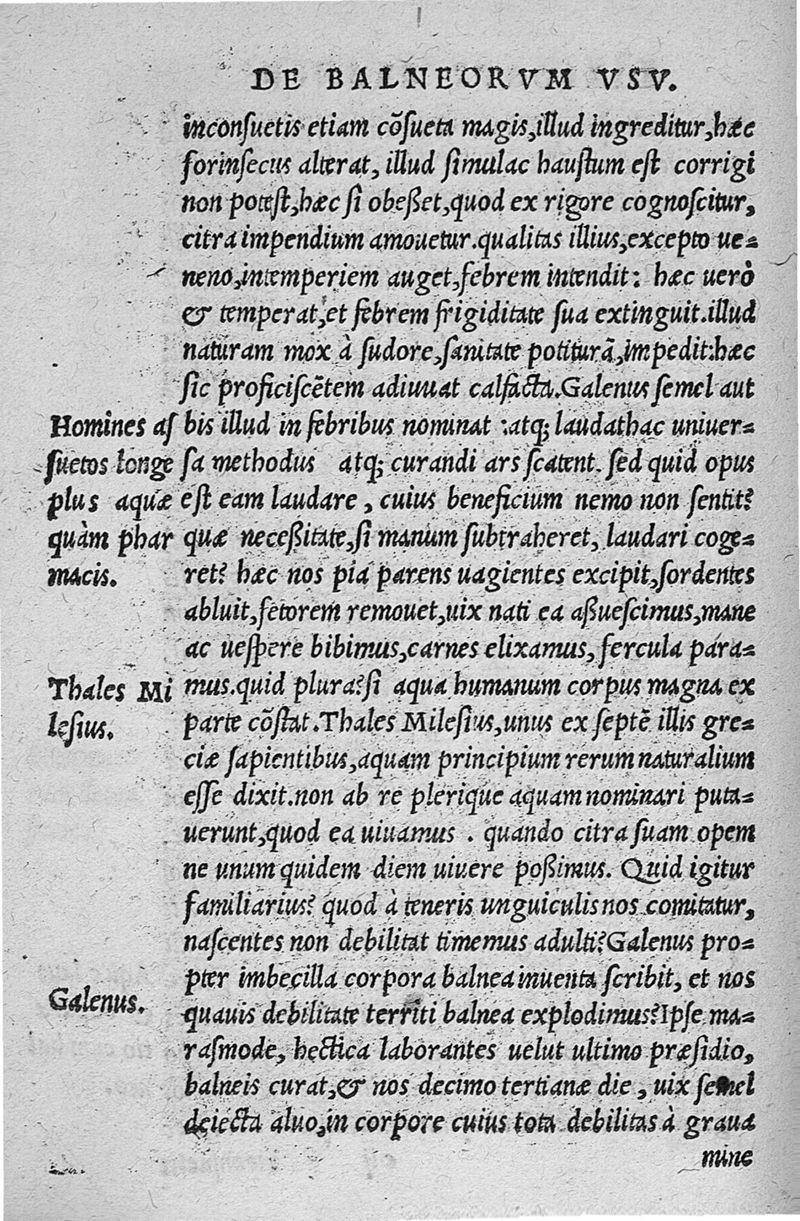 DE BALNEORVM VSV.
inconsuetis etiam cõsueta magis,illud ingreditur,hæc
forinsecus alterat, illud simulac haustum est corrigi
non potest,hæc si obeßet,quod ex rigore cognoscitur,
citra impendium amouetur.qualitas illius,excepto ue=
neno,intemperiem auget,febrem intendit: hæc uerò
& temperat,et febrem frigiditate sua extinguit.illud
naturam mox à sudore,sanitate potiturã,impedit:hæc
sic proficiscẽtem adiuuat calfacta.Galenus semel aut
Homines as
suetos longe
plus aquæ
quàm phar
macis.
bis illud in febribus nominat :atq; laudathac uniuer=
sa methodus atq; curandi ars scatent. sed quid opus
est eam laudare , cuius beneficium nemo non sentit?
quæ neceßitate,si manum subtraheret, laudari coge=
ret? hæc nos pia parens uagientes excipit,sordentes
abluit,fetorem remouet,uix nati ea aßuescimus,mane
ac uespere bibimus,carnes elixamus, fercula para=
Thales Mi
lesius.
mus.quid plura?si aqua humanum corpus magna ex
parte cõstat.Thales Milesius,unus ex septẽ illis gre=
ciæ sapientibus,aquam principium rerum naturalium
esse dixit.non ab re plerique aquam nominari puta=
uerunt,quod ea uiuamus . quando citra suam opem
ne unum quidem diem uiuere poßimus. Quid igitur
familiarius? quod à teneris unguiculis nos comitatur,
nascentes non debilitat timemus adulti?Galenus pro=
pter imbecilla corpora balnea inuenta scribit, et nos
Galenus.
quauis debilitate territi balnea explodimus?Ipse ma=
rasmode, hectica laborantes uelut ultimo præsidio,
balneis curat,& nos decimo tertianæ die , uix semel
deiecta aluo,in corpore cuius tota debilitas à graua
mine